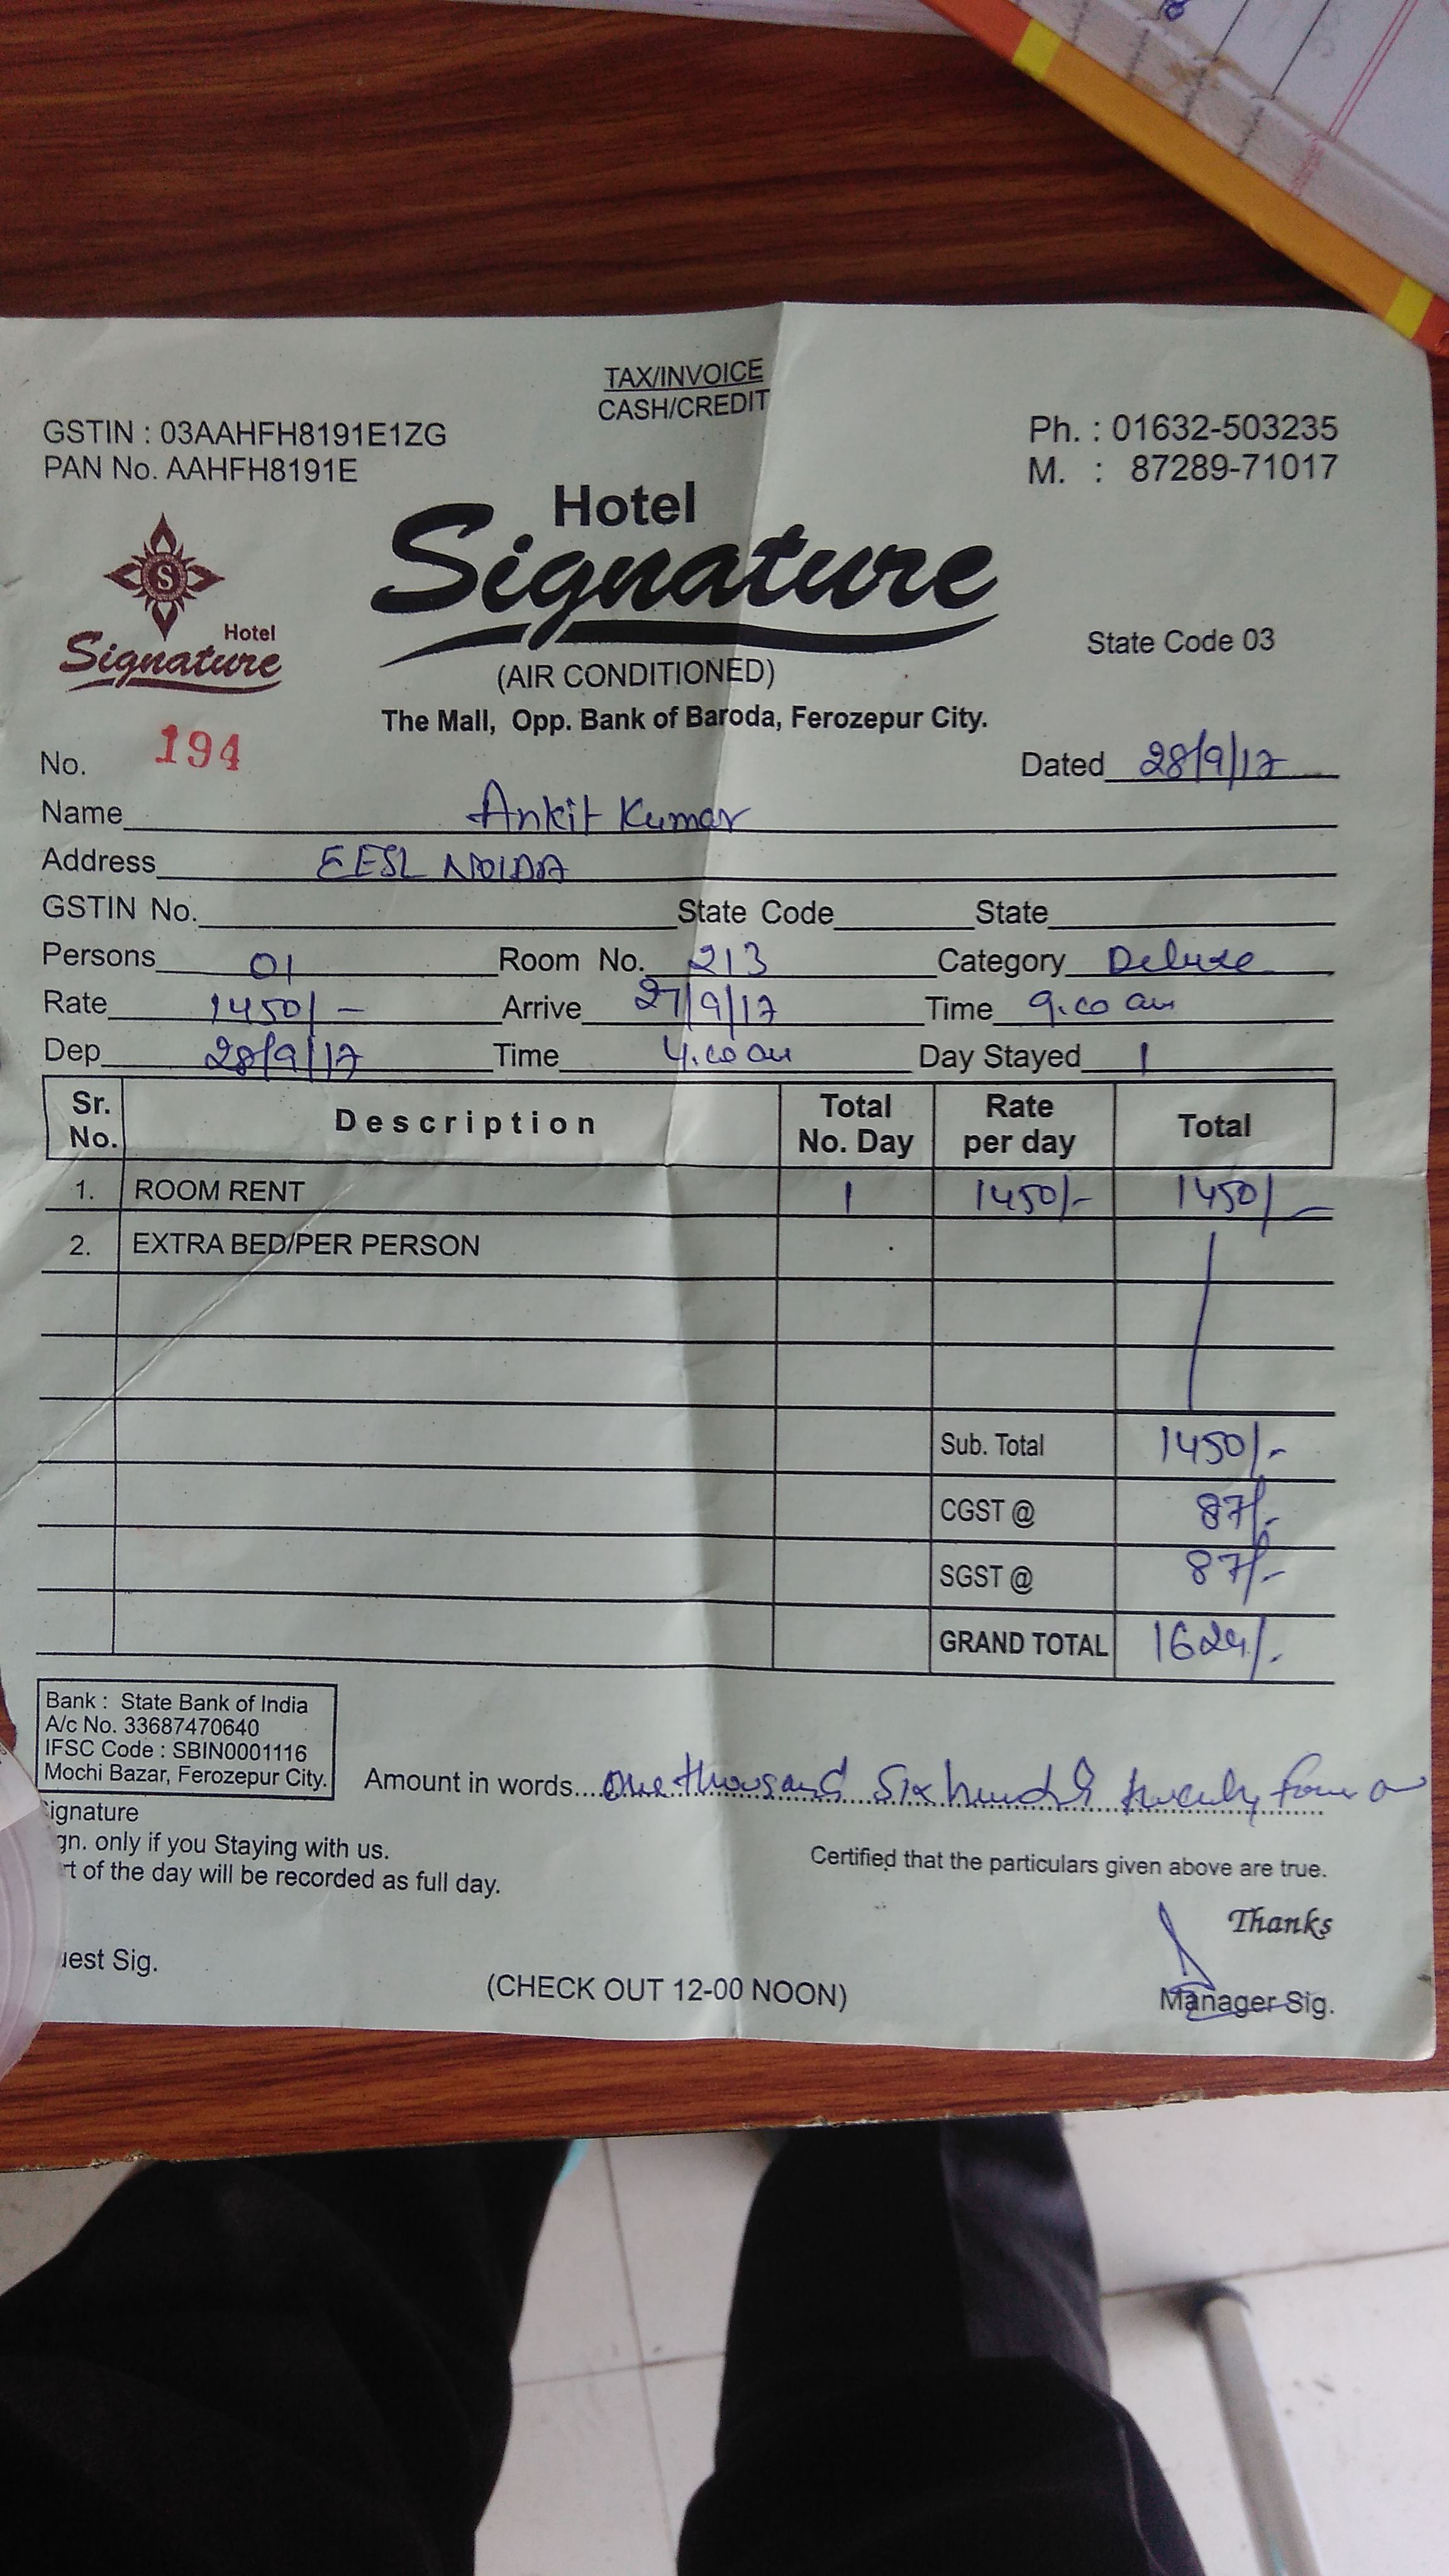 TAX/INVOICE
CASH/CREDIT
GSTIN : 03AAHFH8191E1ZG
PAN No. AAHFH8191E
Ph. : 01632-503235
M. : 87289-71017
S
Hotel
Signature
Hotel
Signature
(AIR CONDITIONED)
State Code 03
The Mall, Opp. Bank of Baroda, Ferozepur City.
No. 194 Dated 28/9/17
Name Ankit Kumar
Address EESL NOIDA
GSTIN No. State Code State
Persons 01 Room No. 213 Category Deluxe
Rate 1450/- Arrive 27/9/17 Time 9.00 am
Dep 28/9/17 Time 4.00 am Day Stayed 1
Sr. No. Description Total No. Day Rate per day Total
1. ROOM RENT 1 1450/- 1450/-
2. EXTRA BED/PER PERSON
Sub. Total 1450/-
CGST @ 87/-
SGST @ 87/-
GRAND TOTAL 1624/-
Bank : State Bank of India
A/c No. 33687470640
IFSC Code : SBIN0001116
Mochi Bazar, Ferozepur City.
Amount in words... one thousand six hundred twenty four
ignature
gn. only if you Staying with us.
rt of the day will be recorded as full day.
Certified that the particulars given above are true.
Thanks
uest Sig.
(CHECK OUT 12-00 NOON)
Manager Sig.